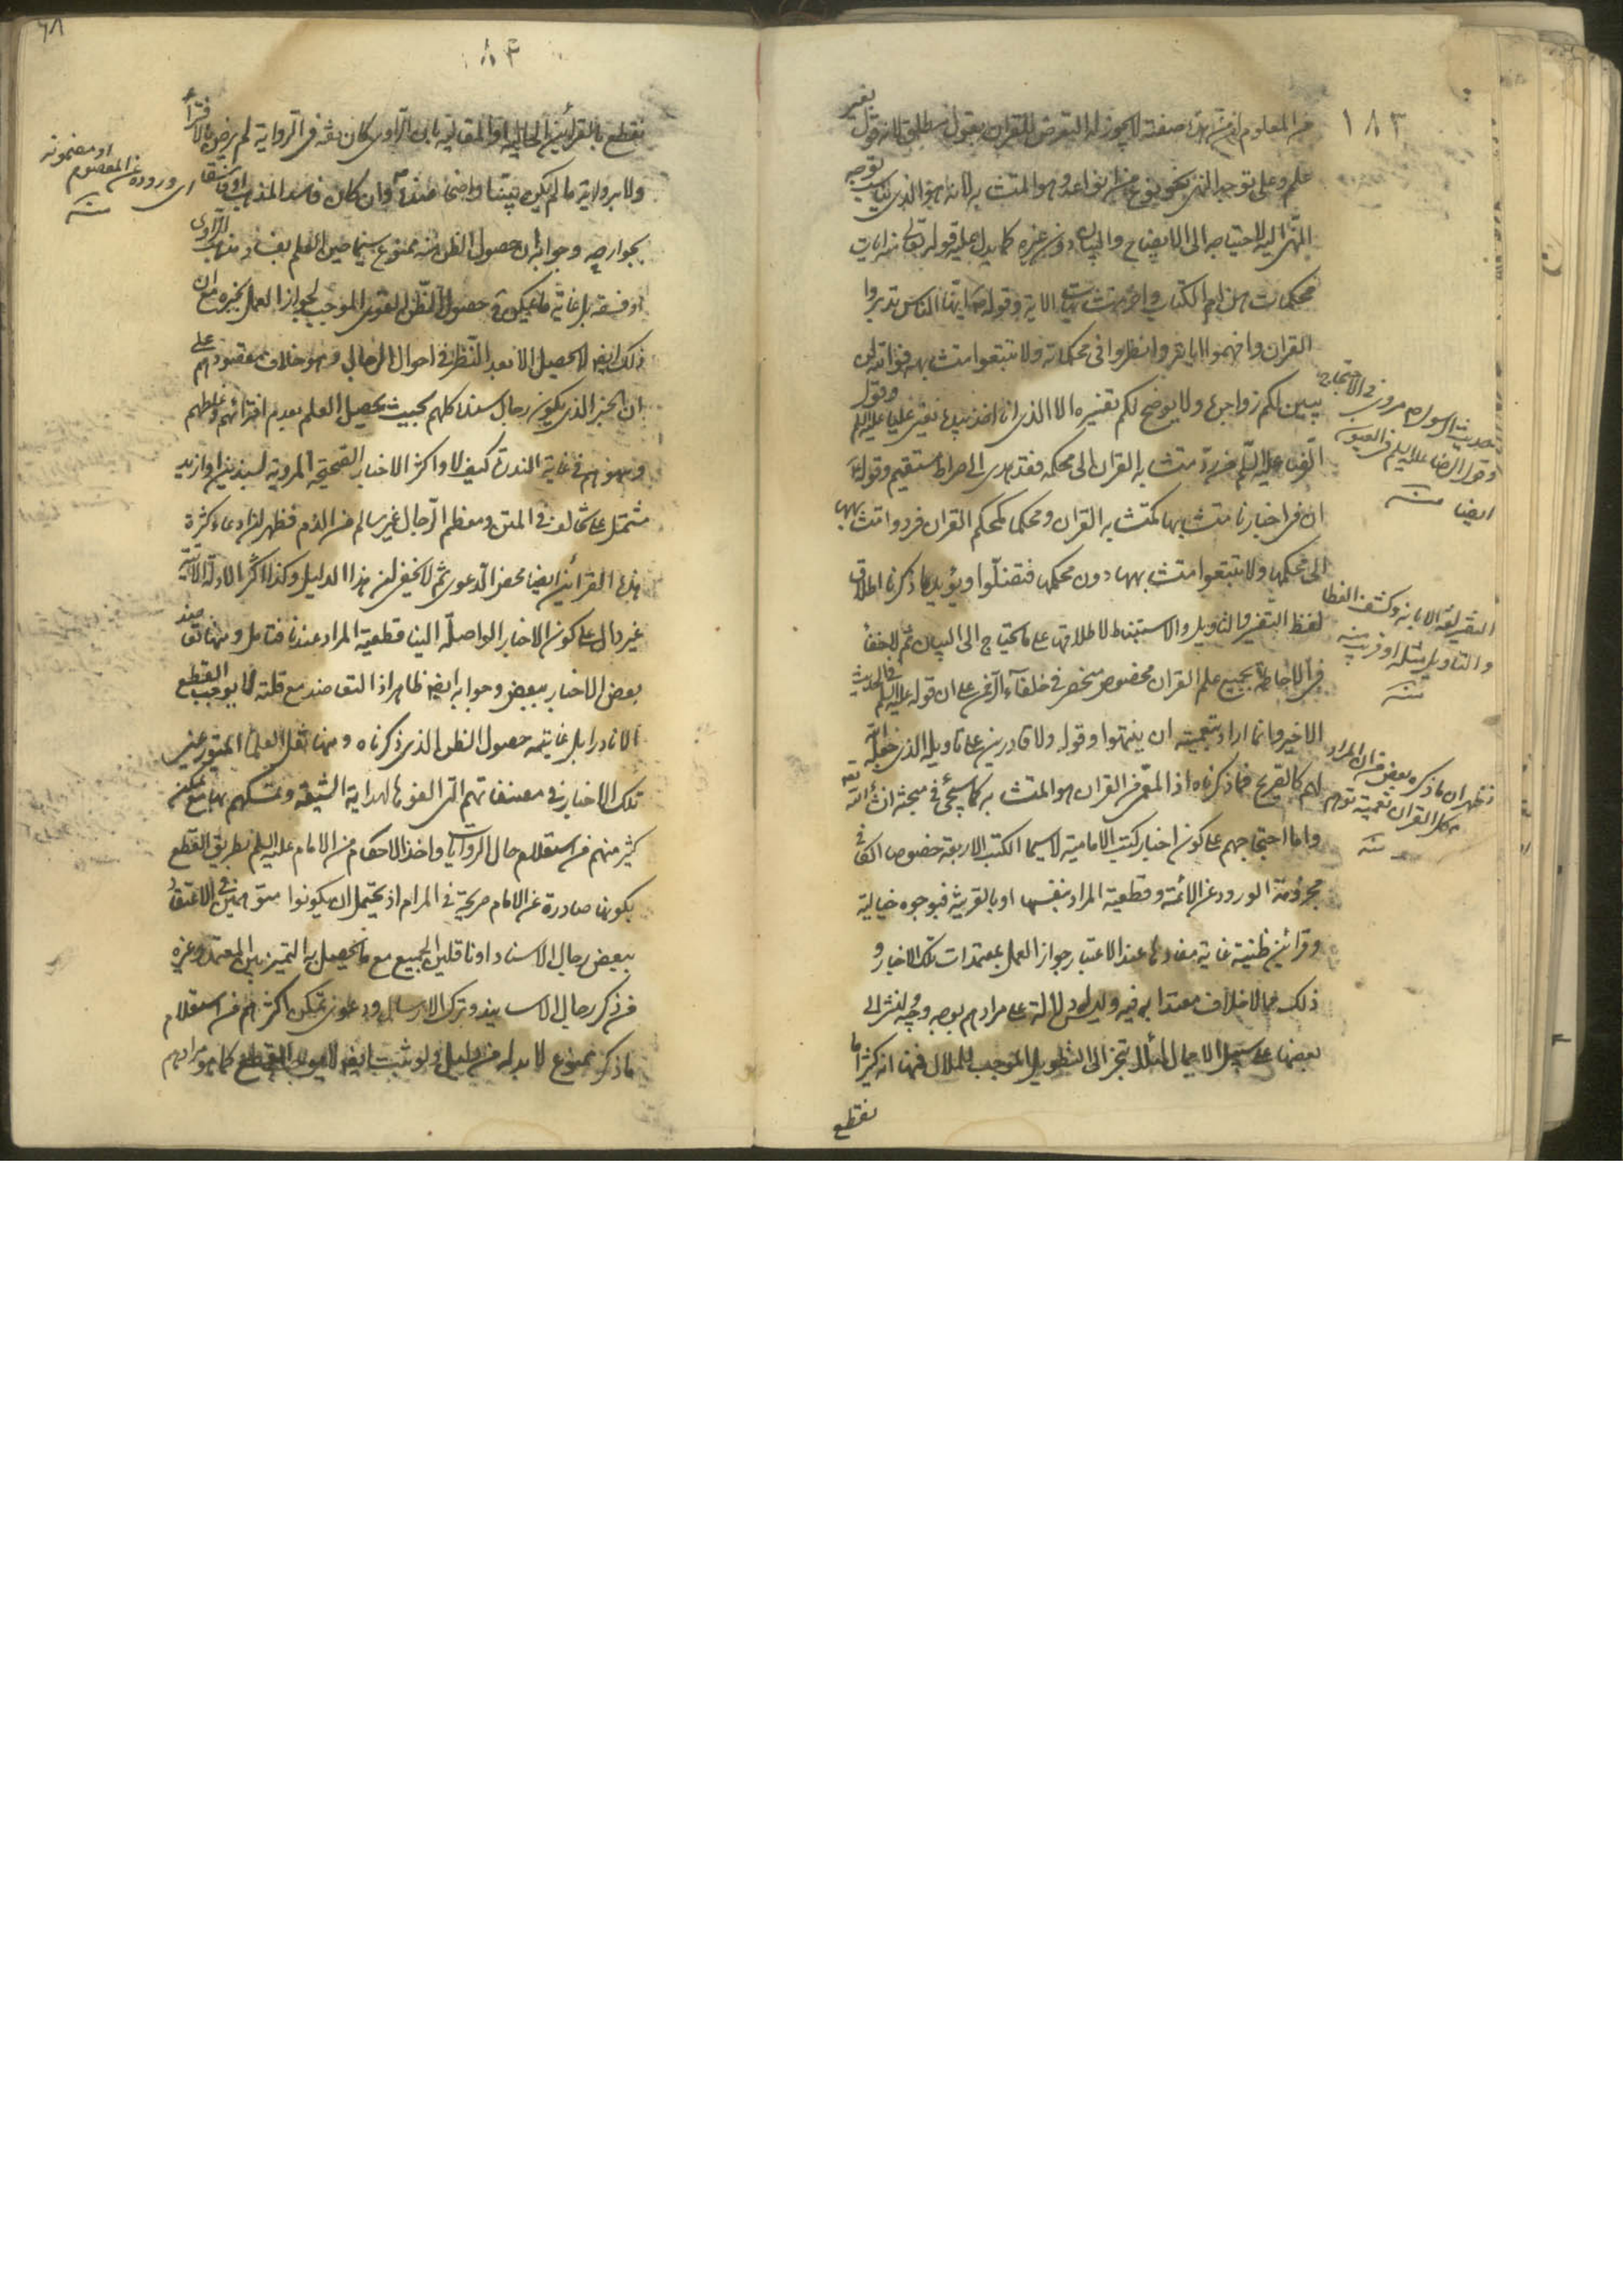 ١٨٣
من المعلوم ان من هذا صفته لا يجوز له التعرض للقران بقول مطلق لانه قول بغير
علم وعلى توجه النهي نحو نوع من انواعه وهو المتشابه لانه هو الذي يناسب توجه
النهي اليه لاحتياجه الى الايضاح والبيان دون غيره كما يدل عليه قوله تعالى منه ايات
محكمات هن ام الكتاب واخر متشابهات الاية وقوله ص ايها الناس تدبروا
القران وافهموا اياته وانظروا في محكماته ولا تتبعوا متشابهه فوالله لن
يبين لكم زواجره ولا يوضح لكم تفسيره الا الذي انا اخذ بيده يعني عليا عليه السلم وقول
الرضا عليه السلم من رد متشابه القران الى محكمه فقد هدى الى صراط مستقيم وقوله
ان في اخبارنا متشابها كمتشابه القران ومحكما كمحكم القران فردوا متشابهها
الى محكمها ولا تتبعوا متشابهها دون محكمها فتضلوا ويؤيد ما ذكرنا اطلاق
لفظ التفسير والتاويل والاستنباط لاطلاقها على ما يحتاج الى البيان ثم لا خفاء
في ان الاحاطة بجميع علم القران مخصوص منحصر في خلفاء الرحمن على ان قوله عليه السلم في الحديث
الاخير وانما اراد بتعميته ان ينتهوا وقوله ولا قادرين على تاويله الذي جعله الله
لهم كالصريح فيما ذكرناه اذ المعمى من القران هو المتشابه كما سيجئ في مبحثه انشاء الله تعه
واما احتجاجهم على كون اخبار كتب الامامية لاسيما الكتب الاربعة خصوصا الكافي
مجزومة الورود عن الائمة وقطعية المراد بنفسها او بالقرينة فبوجوه خيالية
وقرائن ظنية غاية مفادها عند الاعتبار جواز العمل بمعتمدات تلك الاخبار و
ذلك مما لا خلاف معتدا به فيه وليس له دلالة على مرادهم بوجه وجيه لنشر الى
بعضها على سبيل الاجمال لئلا ينجر الى التطويل الموجب للملال فمنها انه كثيرا ما
نقطع
حديث الرسول ص مروي في الاحتجاج
وقول الرضا عليه السلم في العيون
ايضا منه
التفسير لغة الابانة وكشف الغطا
والتاويل مثله او قريب منه
منه
فظهر ان ما ذكره بعض من ان المراد
كل القران تعميته توهم
منه
٨٣
٦٨
نقطع بالقرائن الحالية او المقالية بان الراوي كان ثقة في الرواية لم يرض بالافتراء
ولا برواية ما لم يكن بينا واضحا عنده وان كان فاسد المذهب او فاسقا
بجوارحه وجوابه ان حصول الظن منه ممنوع سيما حين العلم بفساد مذهب الراوي
او فسقه بل غاية ما يكون حصول الظن القوي الموجب لجواز العمل بخبره مع ان
ذلك ايضا لا يحصل الا بعد النظر في احوال الرجال وهو خلاف مقصودهم على
ان الخبر الذي يكون رجال سنده كلهم بحيث يحصل العلم بعدم افترائهم وغلطهم
وسهوهم في غاية الندرة كيف لا واكثر الاخبار الصحيحة المروية بسندين او ازيد
مشتمل على تخالف في المتن ومعظم الرجال غير سالم من الذم فظهر ان ادعاء كثرة
هذه القرائن ايضا محض الدعوى ثم لا يخفى ان هذا الدليل وكذا اكثر الادلة الاتية
غير دال على كون الاخبار الواصلة الينا قطعية المراد عندنا فتامل ومنها تعاضد
بعض الاخبار ببعض وجوابه ايضا ظاهر اذ التعاضد مع قلته لا يوجب القطع
الا نادرا بل غايته حصول الظن الذي ذكرناه ومنها نقل العلماء المتورعين
تلك الاخبار في مصنفاتهم التي الفوها لهداية الشيعة وتمسكهم بها مع تمكن
كثير منهم من استعلام حال الروايات واخذ الاحكام من الامام عليه السلم بطريق القطع
بكونها صادرة عن الامام صريحة في المرام اذ يحتمل ان يكونوا متوهمين في الاعتقاد
ببعض رجال الاسناد او ناقلين الجميع مع ما يحصل به التميز بين المعتمد وغيره
من ذكر رجال الاسانيد وترك الارسال ودعوى تمكن اكثرهم من استعلام
ما ذكر ممنوع لا بد له من دليل ولو ثبت ايضا لا يوجب القطع كما هو مرادهم
اي وروده عن المعصوم
او مضمونه
منه